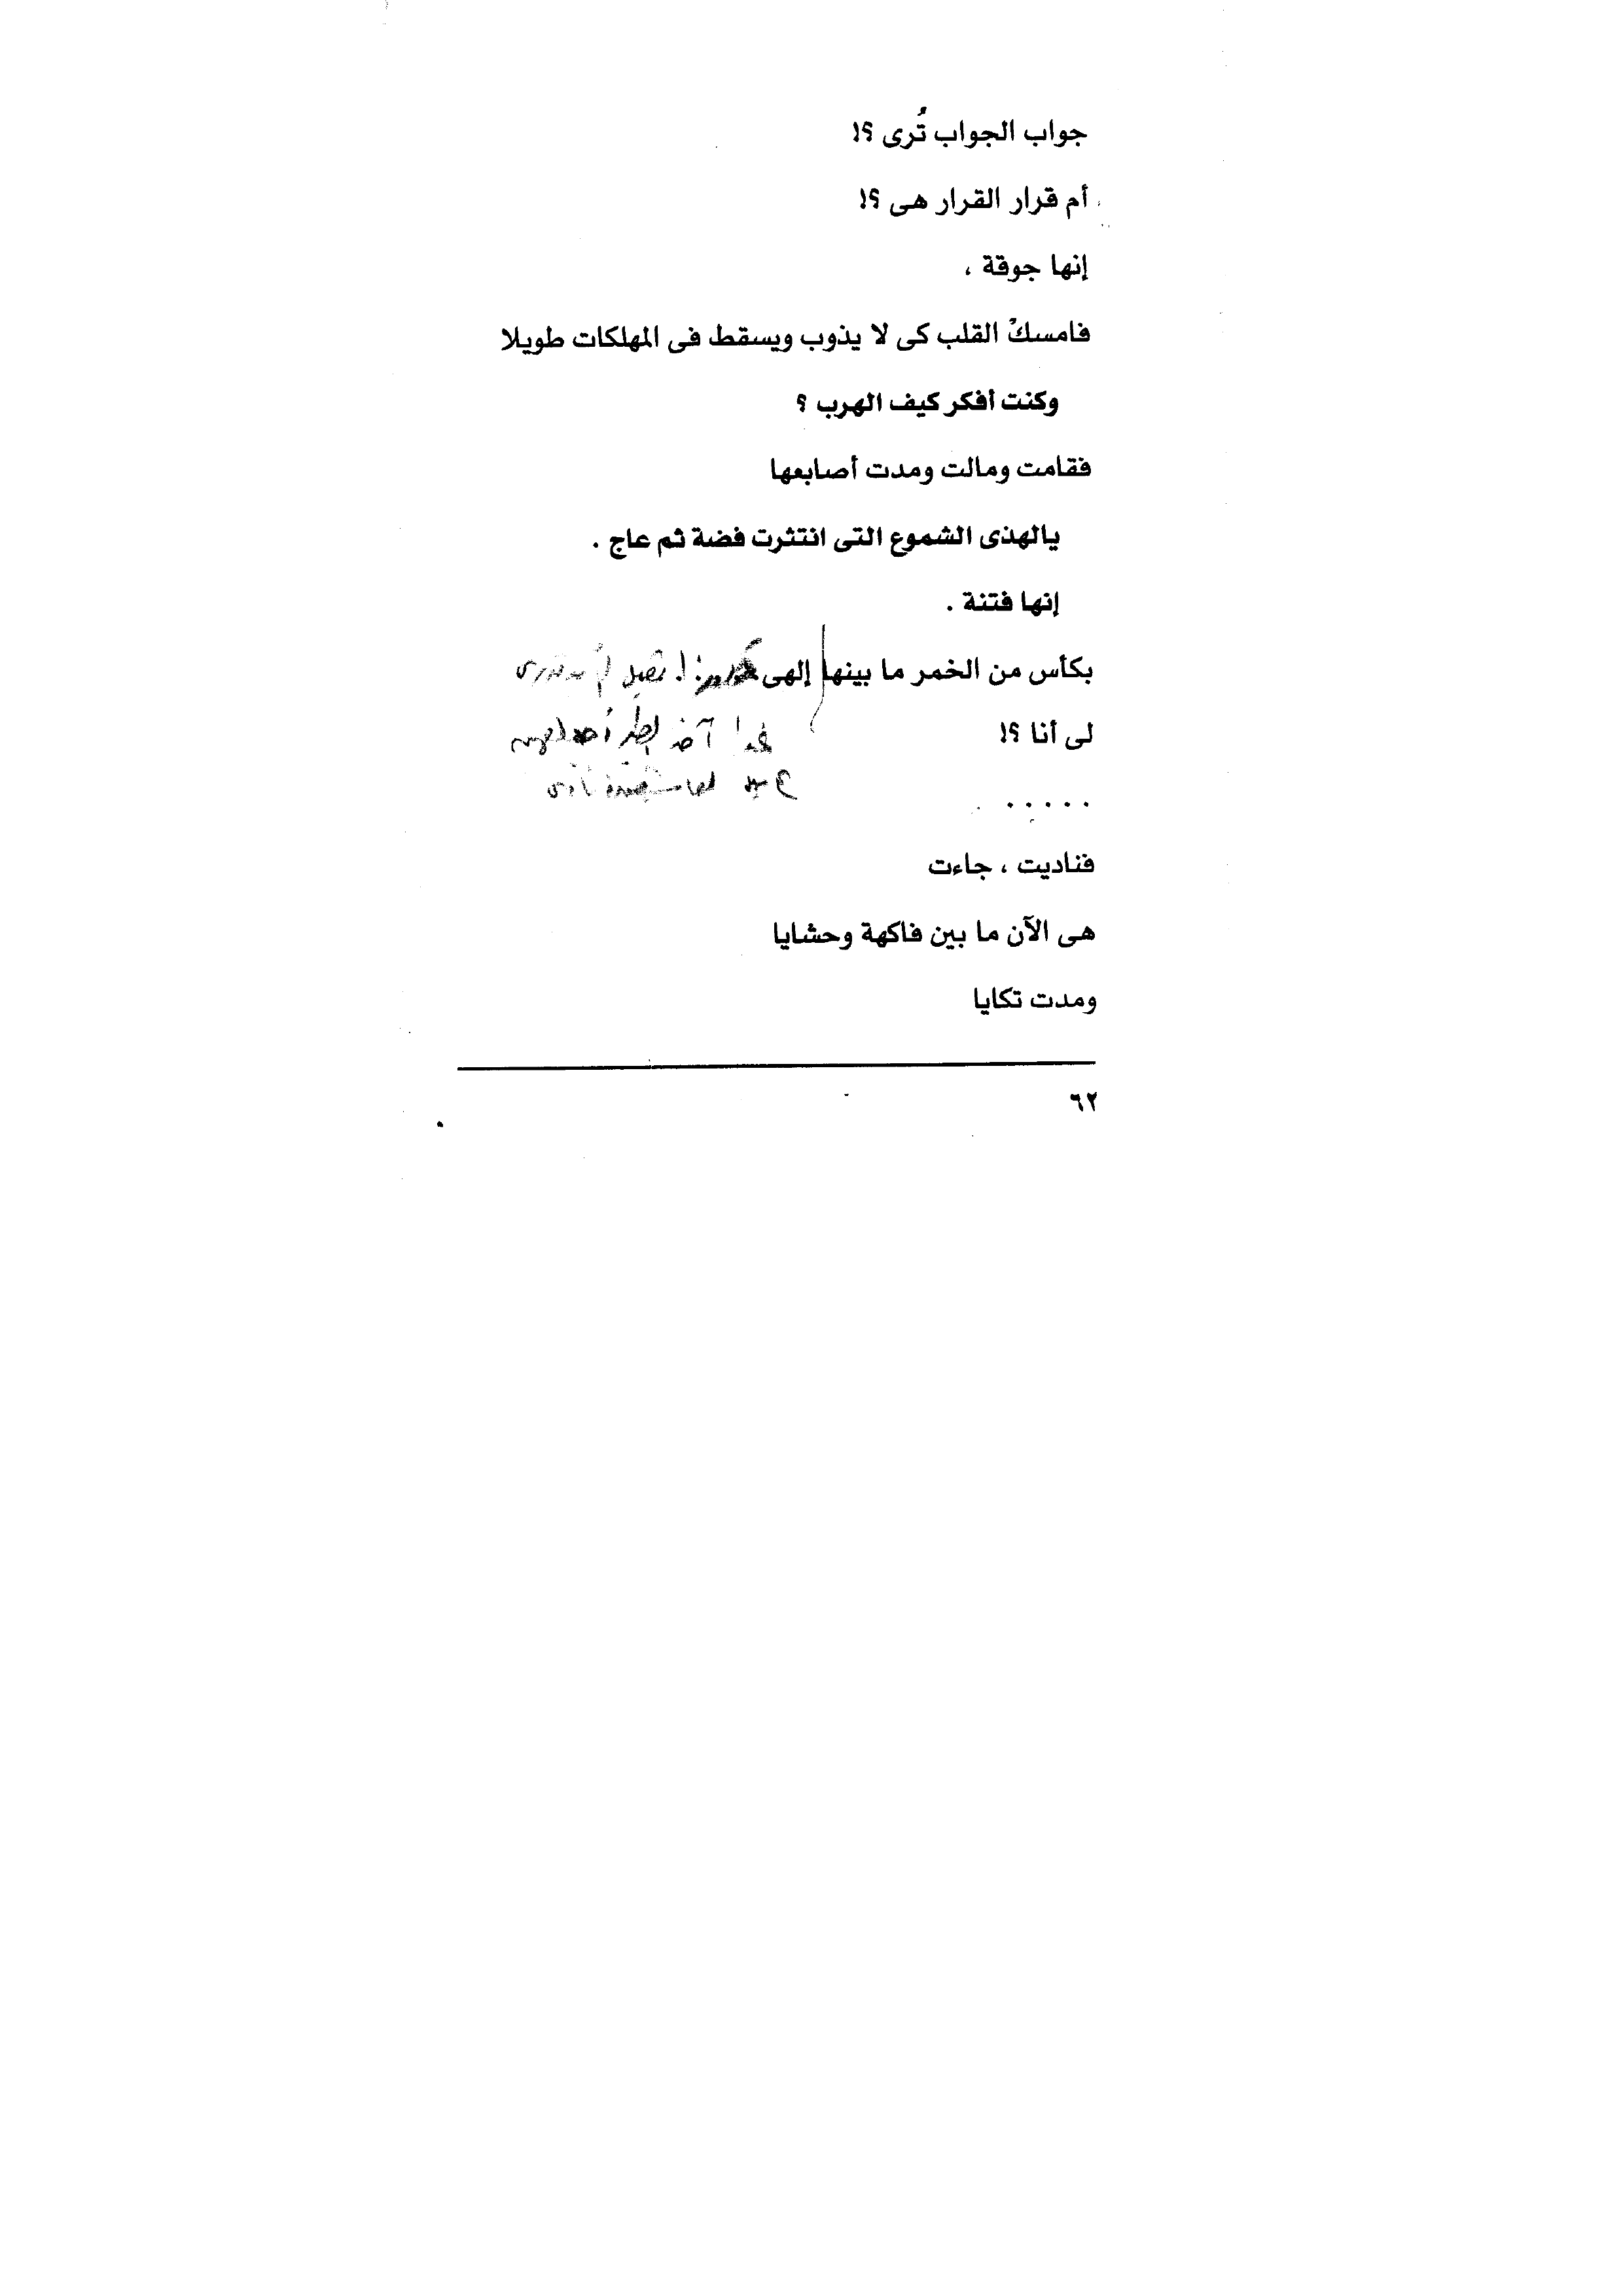 جواب الجواب تُرى ؟!
أم قرار القرار هى ؟!
إنها جوقة ،
فامسكْ القلب كى لا يذوب ويسقط فى المهلكات طويلا
وكنت أفكر كيف الهرب ؟
فقامت ومالت ومدت أصابعها
يالهذى الشموع التى انتثرت فضة ثم عاج .
إنها فتنة .
بكأس من الخمر ما بينها إلهى
لى أنا ؟!
. . . . .
فناديت ، جاءت
هى الآن ما بين فاكهة وحشايا
ومدت تكايا
٦٢